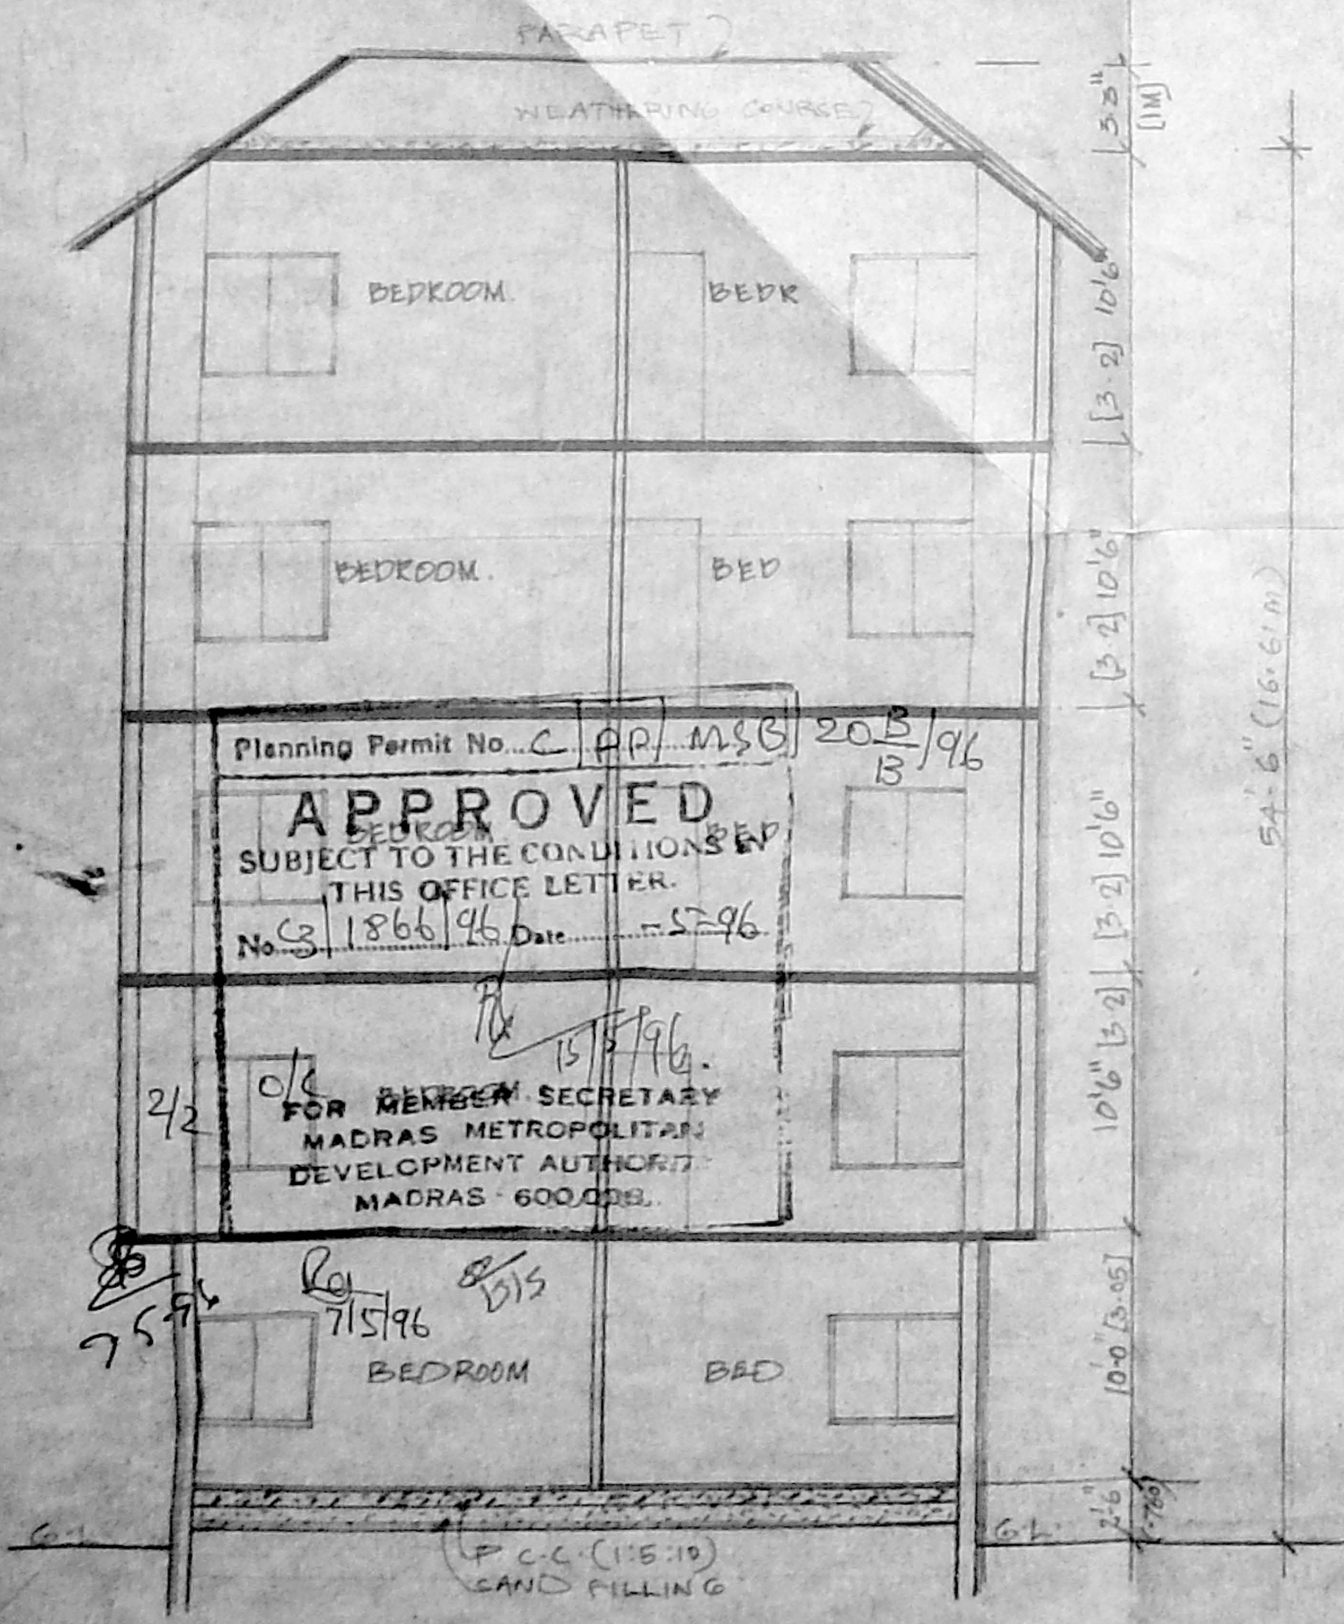 PARAPET
WEATHERING COURSE
3'3"
[1M]
BEDROOM
BEDR
[3.2] 10'6"
BEDROOM.
BED
[3.2] 10'6"
54'-6" (16.61M)
Planning Permit No... C / PP / MSB / 20 B/B / 96
APPROVED
BEDROOM
BED
SUBJECT TO THE CONDITIONS IN
THIS OFFICE LETTER.
No C3 / 1866 / 96 Date -5-96
[3.2] 10'6"
15/5/96.
2/2
O/C
BEDROOM
FOR MEMBER SECRETARY
MADRAS METROPOLITAN
DEVELOPMENT AUTHORIT
MADRAS - 600,008.
10'6" [3.2]
7 5-96
7/5/96
15/5
BEDROOM
BED
10'-0 [3.05]
2'6"
(.760)
G.L.
G.L.
P C.C. (1:5:10)
SAND FILLING